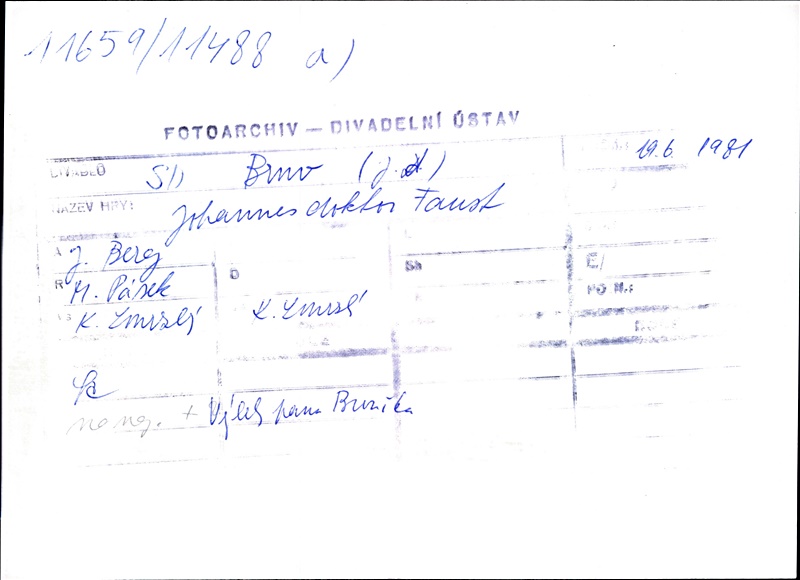 11659/11488 a)
FOTOARCHIV — DIVADELNÍ ÚSTAV
DIVADLO SD Brno (j.d.) 19.6. 1981
NÁZEV HRY: Johannes doktor Faust
A J. Berg
R M. Pásek D Sh E/
PO N.:
K. Zmrzlý K. Zmrzlý
+ Výlet pana Broučka